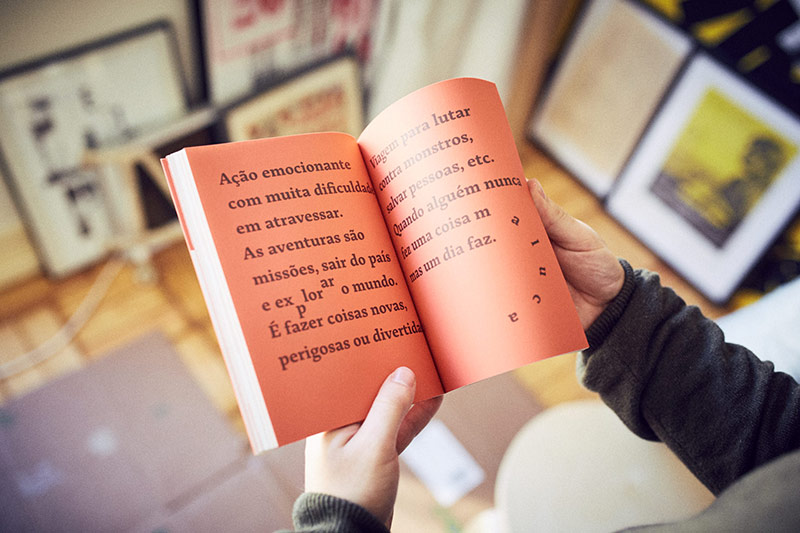 Ação emocionante
com muita dificuldade
em atravessar.
As aventuras são
missões, sair do país
e explorar o mundo.
É fazer coisas novas,
perigosas ou divertida
Viagem para lutar
contra monstros,
salvar pessoas, etc.
Quando alguém nunca
fez uma coisa maluca
mas um dia faz.